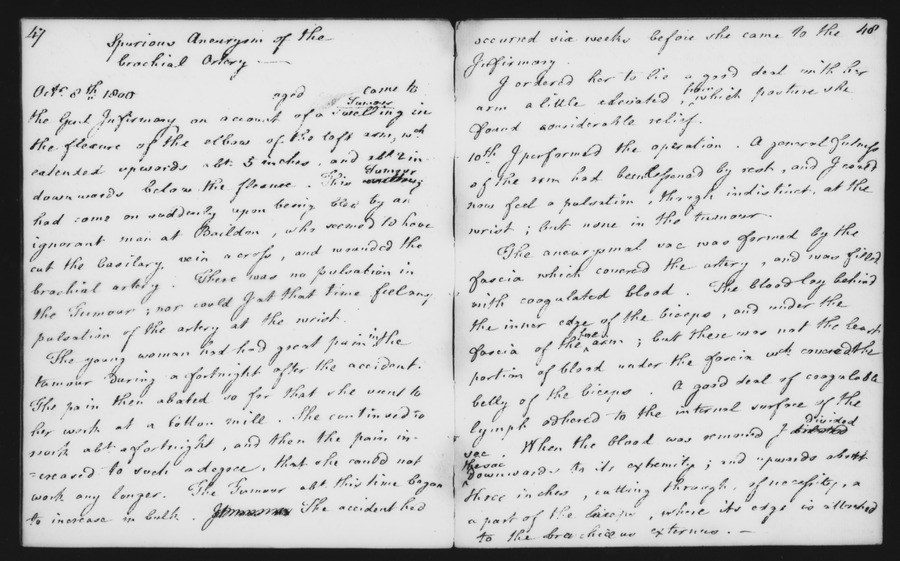 47
Spurious Aneurysm of the
brachial Artery —
Octr. 8th 1800 aged came to
the Genl. Infirmary on account of a Tumour Swelling in
the flexure of the elbow of the left arm, wch
extended upwards abt. 3 inches, and abt 2 in-
downwards below the flexure. This Tumour
had come on suddenly upon being bled by an
ignorant man at Baildon, who seemed to have
cut the basilary vein across, and wounded the
brachial artery. There was no pulsation in
the Tumour; nor could I at that time feel any
pulsation of the artery at the wrist.
The young woman had had great pain in the
tumour during a fortnight after the accident.
The pain then abated so far that she went to
her work at a Cotton mill. She continued to
work abt. a fortnight, and then the pain in-
=creased to such a degree, that she could not
work any longer. The Tumour abt. this time began
to increase in bulk. The accident had
48
occurred six weeks before she came to the
Infirmary.
I ordered her to lie a good deal with her
arm a little elevated, from which posture she
found considerable relief.
10th I performed the operation. A general fulness
of the arm had been lessened by rest, and I could
now feel a pulsation, though indistinct, at the
wrist; but none in the tumour.
The aneurysmal sac was formed by the
fascia which covered the artery, and was filled
with coagulated blood. The blood lay behind
the inner edge of the biceps, and under the
fascia of the fore arm; but there was not the least
portion of blood under the fascia wch. covered the
belly of the biceps. A good deal of coagulable
lymph adhered to the internal surface of the
sac. When the blood was removed I divided
the sac downwards to its extremity; and upwards about
three inches, cutting through, of necessity, a
a part of the biceps, where its edge is attached
to the brachiæus externus. —